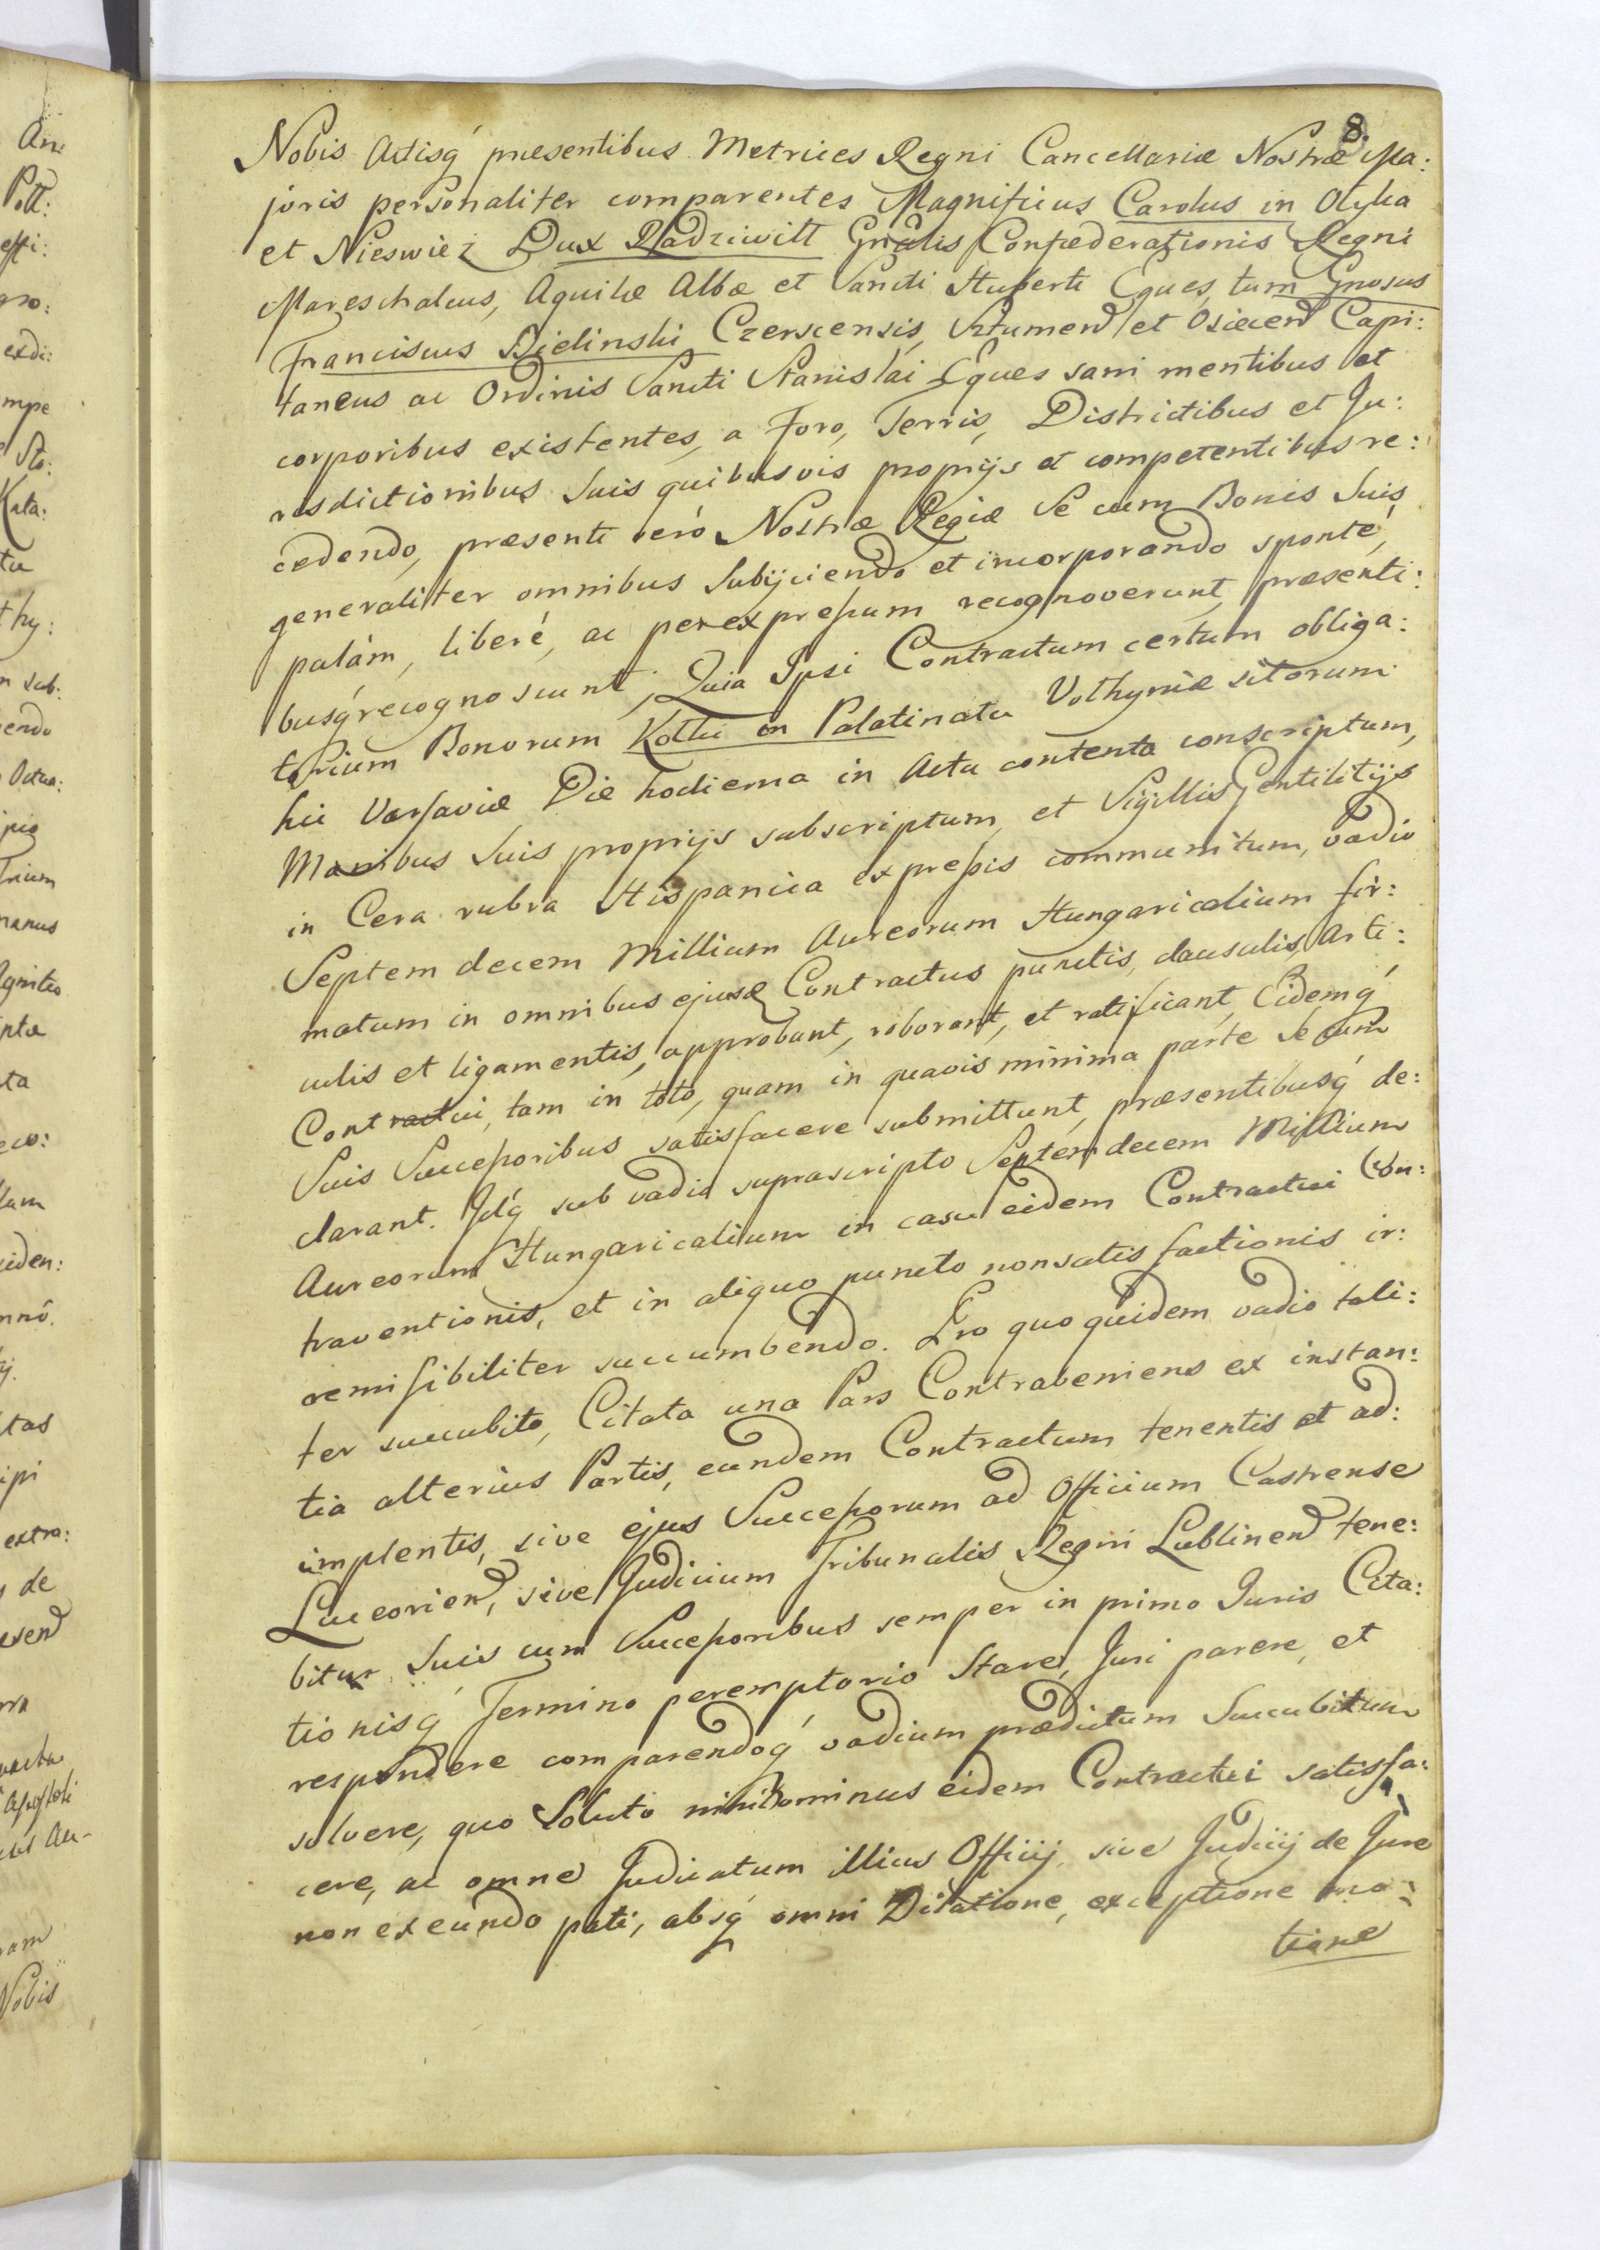 8.
Nobis Actisq́ præsentibus Metrices Regni Cancellariæ Nostræ Ma:
joris personaliter comparentes Magnificus Carolus in Olyka
et Nieswiez Dux Radziwiłł Gnãlis Confæderationis Regni
Mareschalcus, Aquilæ Albæ et Sancti Huberti Eques, tum Gnosus
Franciscus Bielinski Czerscensis, Sztumen et Osiecen Capi:
taneus ac Ordinis Sancti Stanislai Eques sani mentibus et
corporibus existentes, a Foro, Terris, Districtibus et Ju:
risdictionibus Suis quibusvis proprijs et competentibus re:
cedendo, præsenti veró Nostræ Regiæ Se cum Bonis Suis
generaliter omnibus Subijciendo et incorporando sponté,
palám, liberé, ac per expressum recognoverunt, præsenti:
busq́ recognoscunt, Quia Ipsi Contractum certum obliga:
torium Bonorum Kołki in Palatinatu Volhyniæ sitorum
hic Varsaviæ Die hodierna in Actu contenta conscriptum,
Manibus Suis proprijs subscriptum, et Sigillis Gentilitijs
in Cera rubra Hispanica expressis communitum, vadio
Septem decem Millium Aureorum Hungaricalium fir:
matum in omnibus ejusd Contractus punctis, clausulis, Arti:
culis et ligamentis, approbant, roborant, et ratificant, Eidemq́
Contractui, tam in toto, quam in quavis minima parte se cum
Suis Successoribus satisfacere submittunt, præsentibusq́ de:
clarant. Idq́ sub vadio suprascripto Septem decem Millium
Aureorum Hungaricalium in casu eidem Contractui Con:
traventionis, et in aliquo puncto nonsatisfactionis ir:
remissibiliter succumbendo. Pro quo quidem vadio tali:
ter succubito, Citata una Pars Contraveniens ex instan:
tia alterius Partis, eundem Contractum tenentis et ad:
implentis, sive ejus Successorum ad Officium Castrense
Luceorien, sive Judicium Tribunalis Regni Lublinen tene:
bitur Suis cum Successoribus semper in primo Juris Cita:
tionisq́ Termino peremptorio Stare, Juri parere, et
respondere comparendoq́ vadium prædictum Succubitum
solvere, quo Soluto nihilominus eidem Contractui satisfa:
cere, ac omne Judicatum illius Officij sive Judicij de Jure
non exeundo pati, absq́ omni Dilatione, exceptione mo:
tione